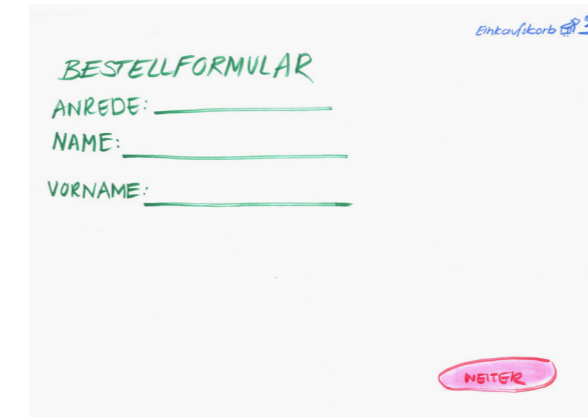 Einkaufskorb
BESTELLFORMULAR
ANREDE:
NAME:
VORNAME:
WEITER